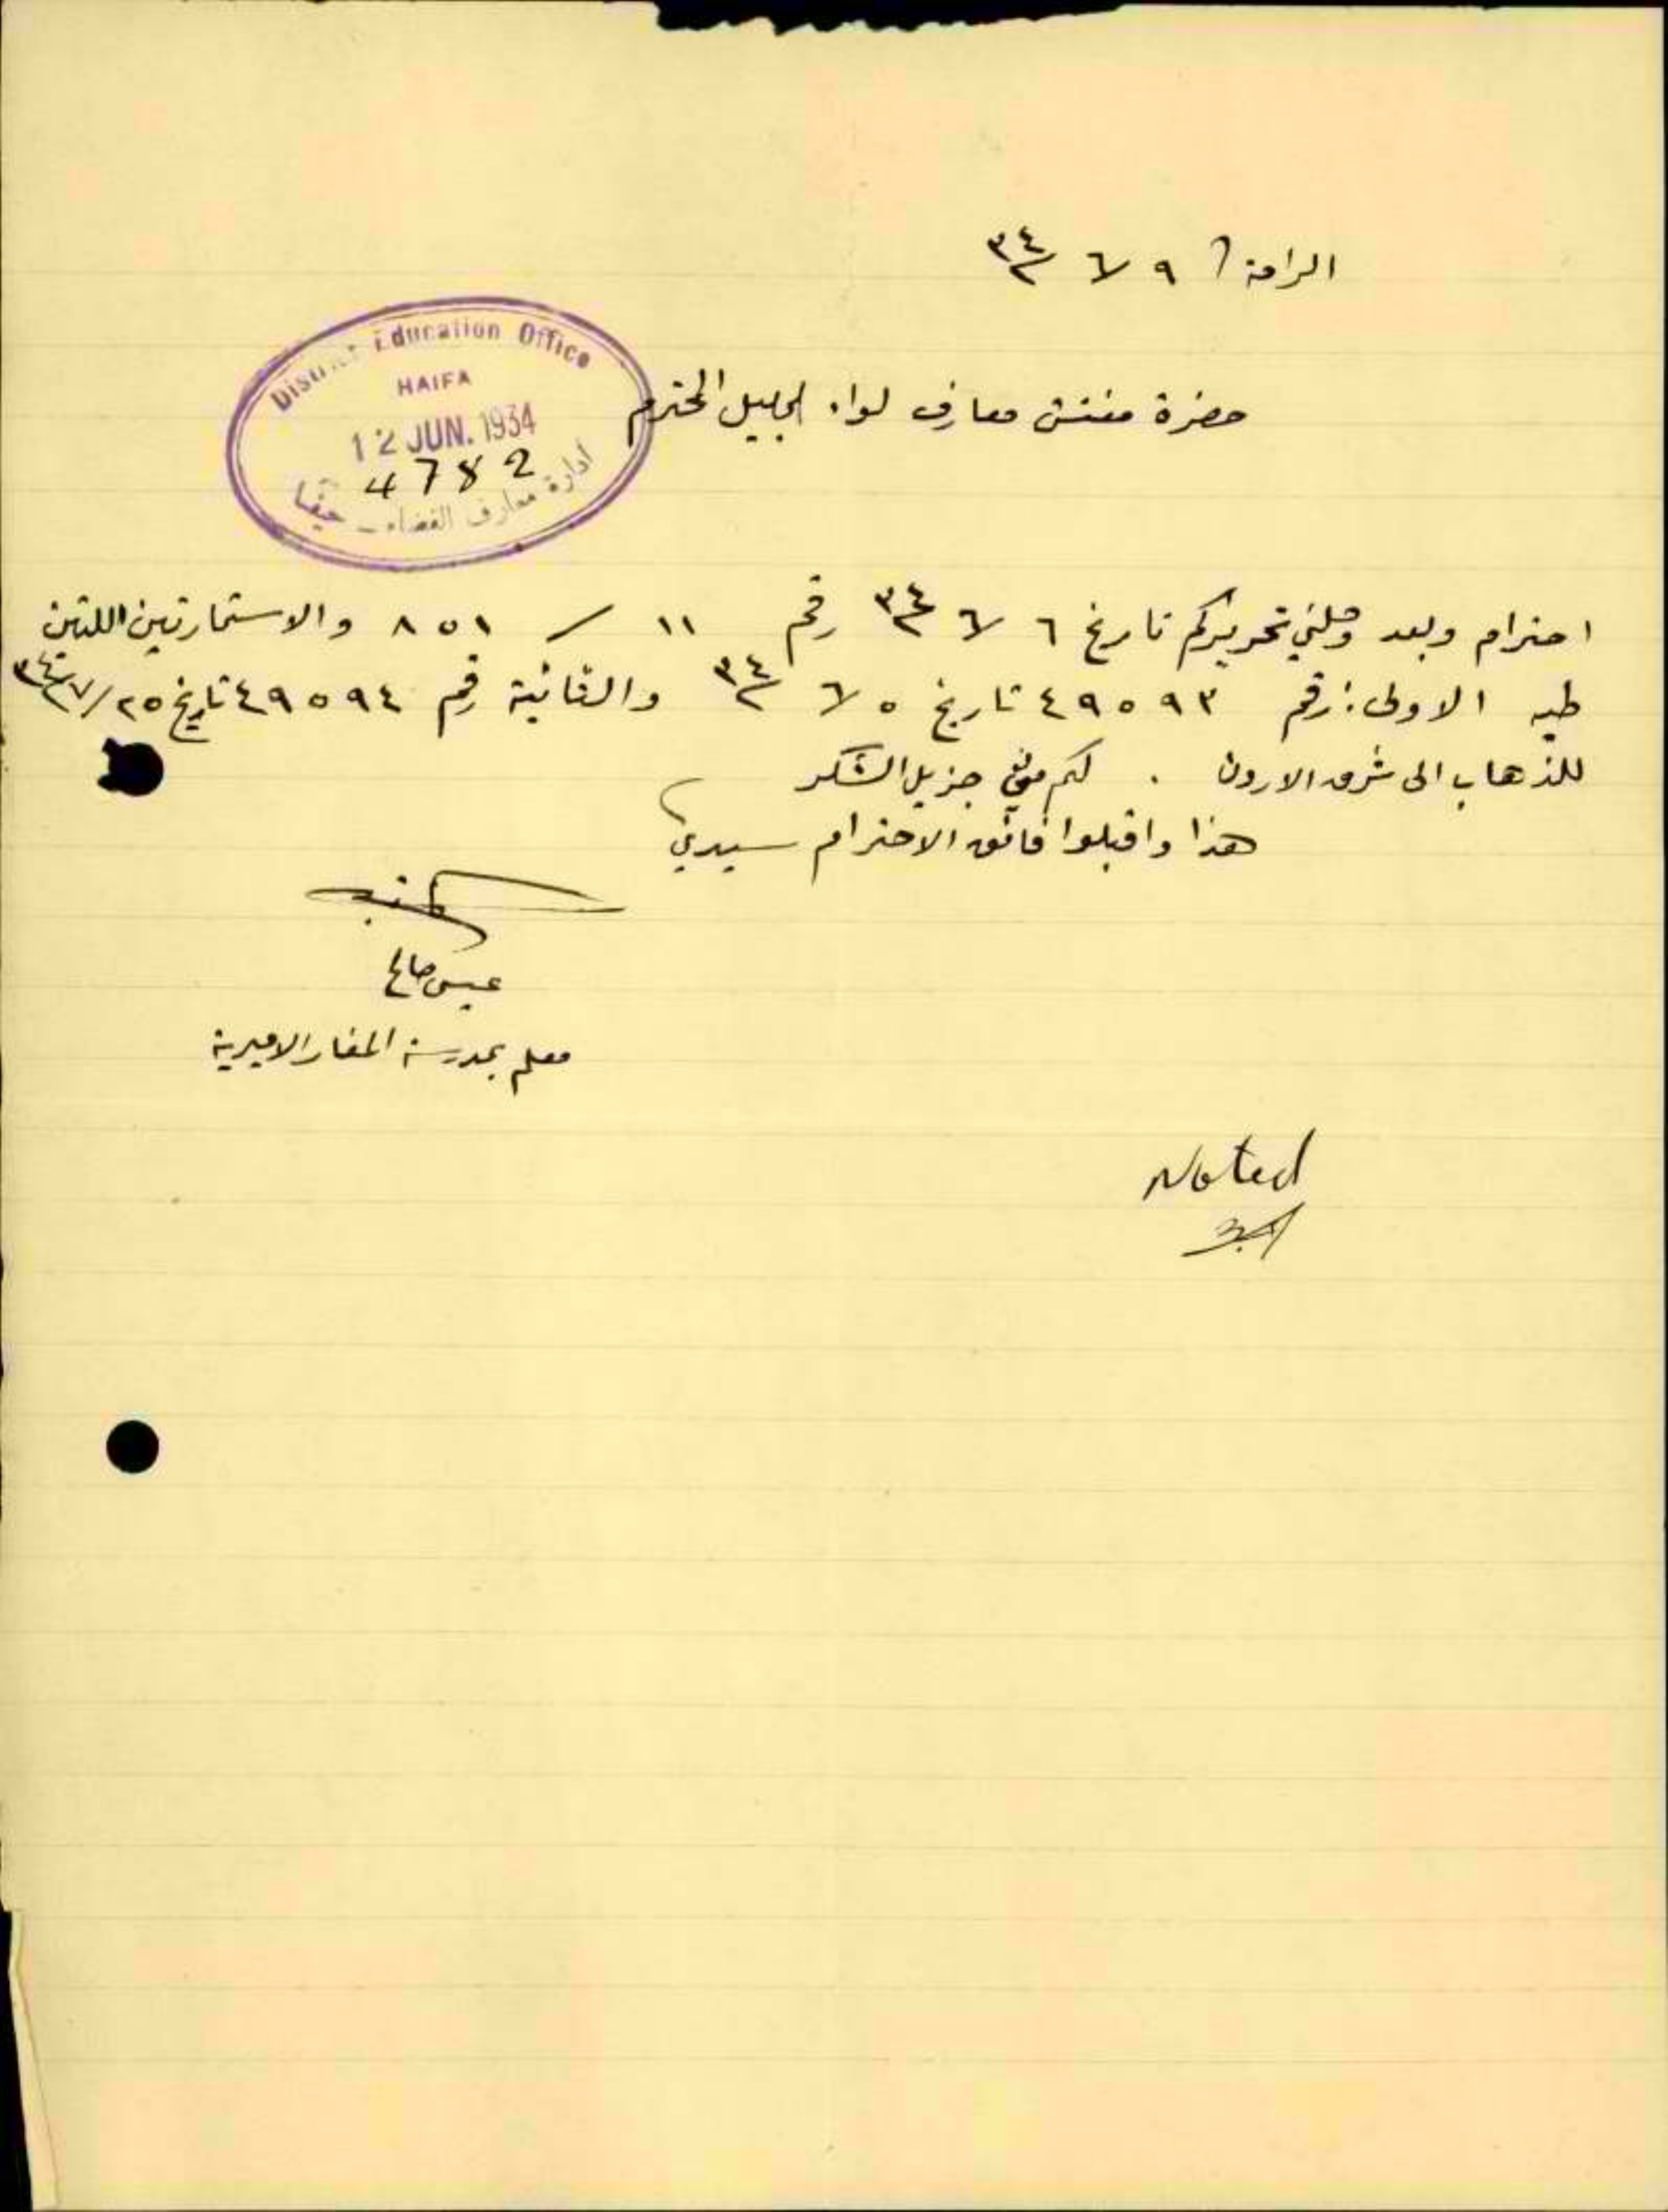 الرامة ٩/٦/٣٤
District Education Office
HAIFA
12 JUN. 1934
4782
ادارة معارف القضاء - حيفا
حضرة مفتش معارف لواء الجليل المحترم
احترام وبعد وصلني تحريركم تاريخ ٦/٦/٣٤ رقم ١١/٨٥١ والاستمارتين اللتين
طيه الاولى: رقم ٤٩٥٩٣ تاريخ ٥/٦/٣٤ والثانية رقم ٤٩٥٩٤ تاريخ ٢٥/٧/٣٤
للذهاب الى شرق الاردن . لكم مني جزيل الشكر
هذا واقبلوا فائق الاحترام سيدي
عيسى صالح
معلم بمدرسة المغار الاميرية
Noted